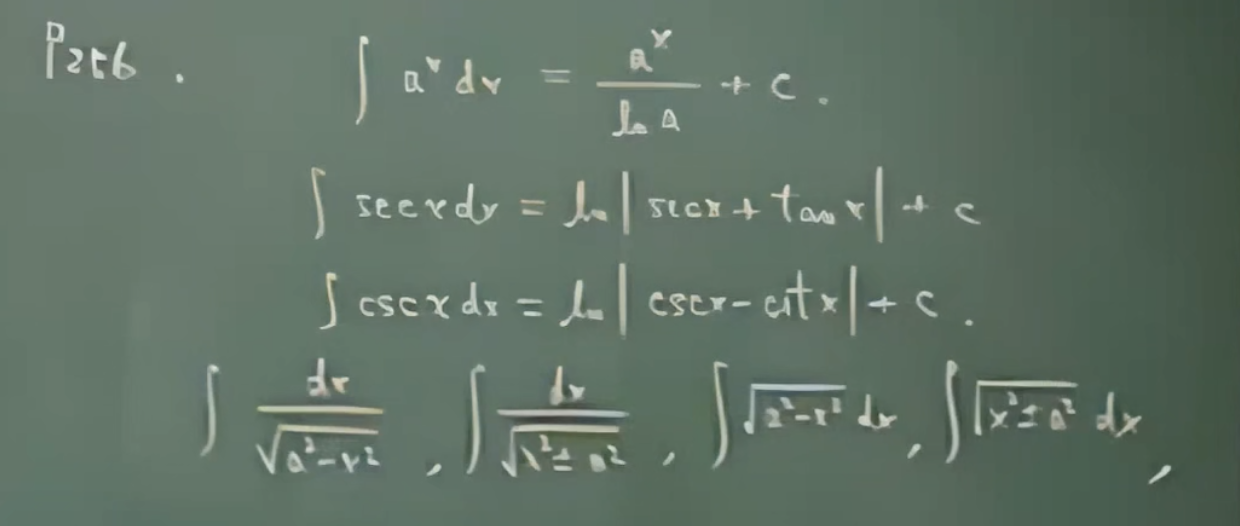 P256. ∫ aˣ dx = aˣ / ln a + c.
∫ sec x dx = ln | sec x + tan x | + c
∫ csc x dx = ln | csc x - cot x | + c.
∫ dx / √(a² - x²), ∫ dx / √(x² ± a²), ∫ √(a² - x²) dx, ∫ √(x² ± a²) dx,